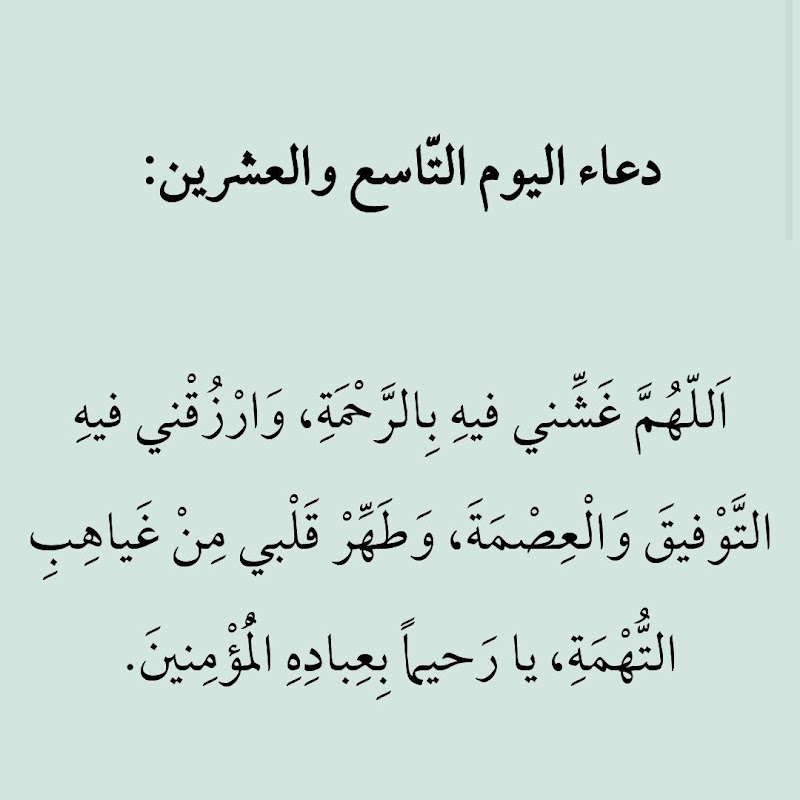 دعاء اليوم التّاسع والعشرين:
اَللّهُمَّ غَشِّني فيهِ بِالرَّحْمَةِ، وَارْزُقْني فيهِ
التَّوْفيقَ وَالْعِصْمَةَ، وَطَهِّرْ قَلْبي مِنْ غَياهِبِ
التُّهْمَةِ، يا رَحيماً بِعِبادِهِ الْمُؤْمِنينَ.